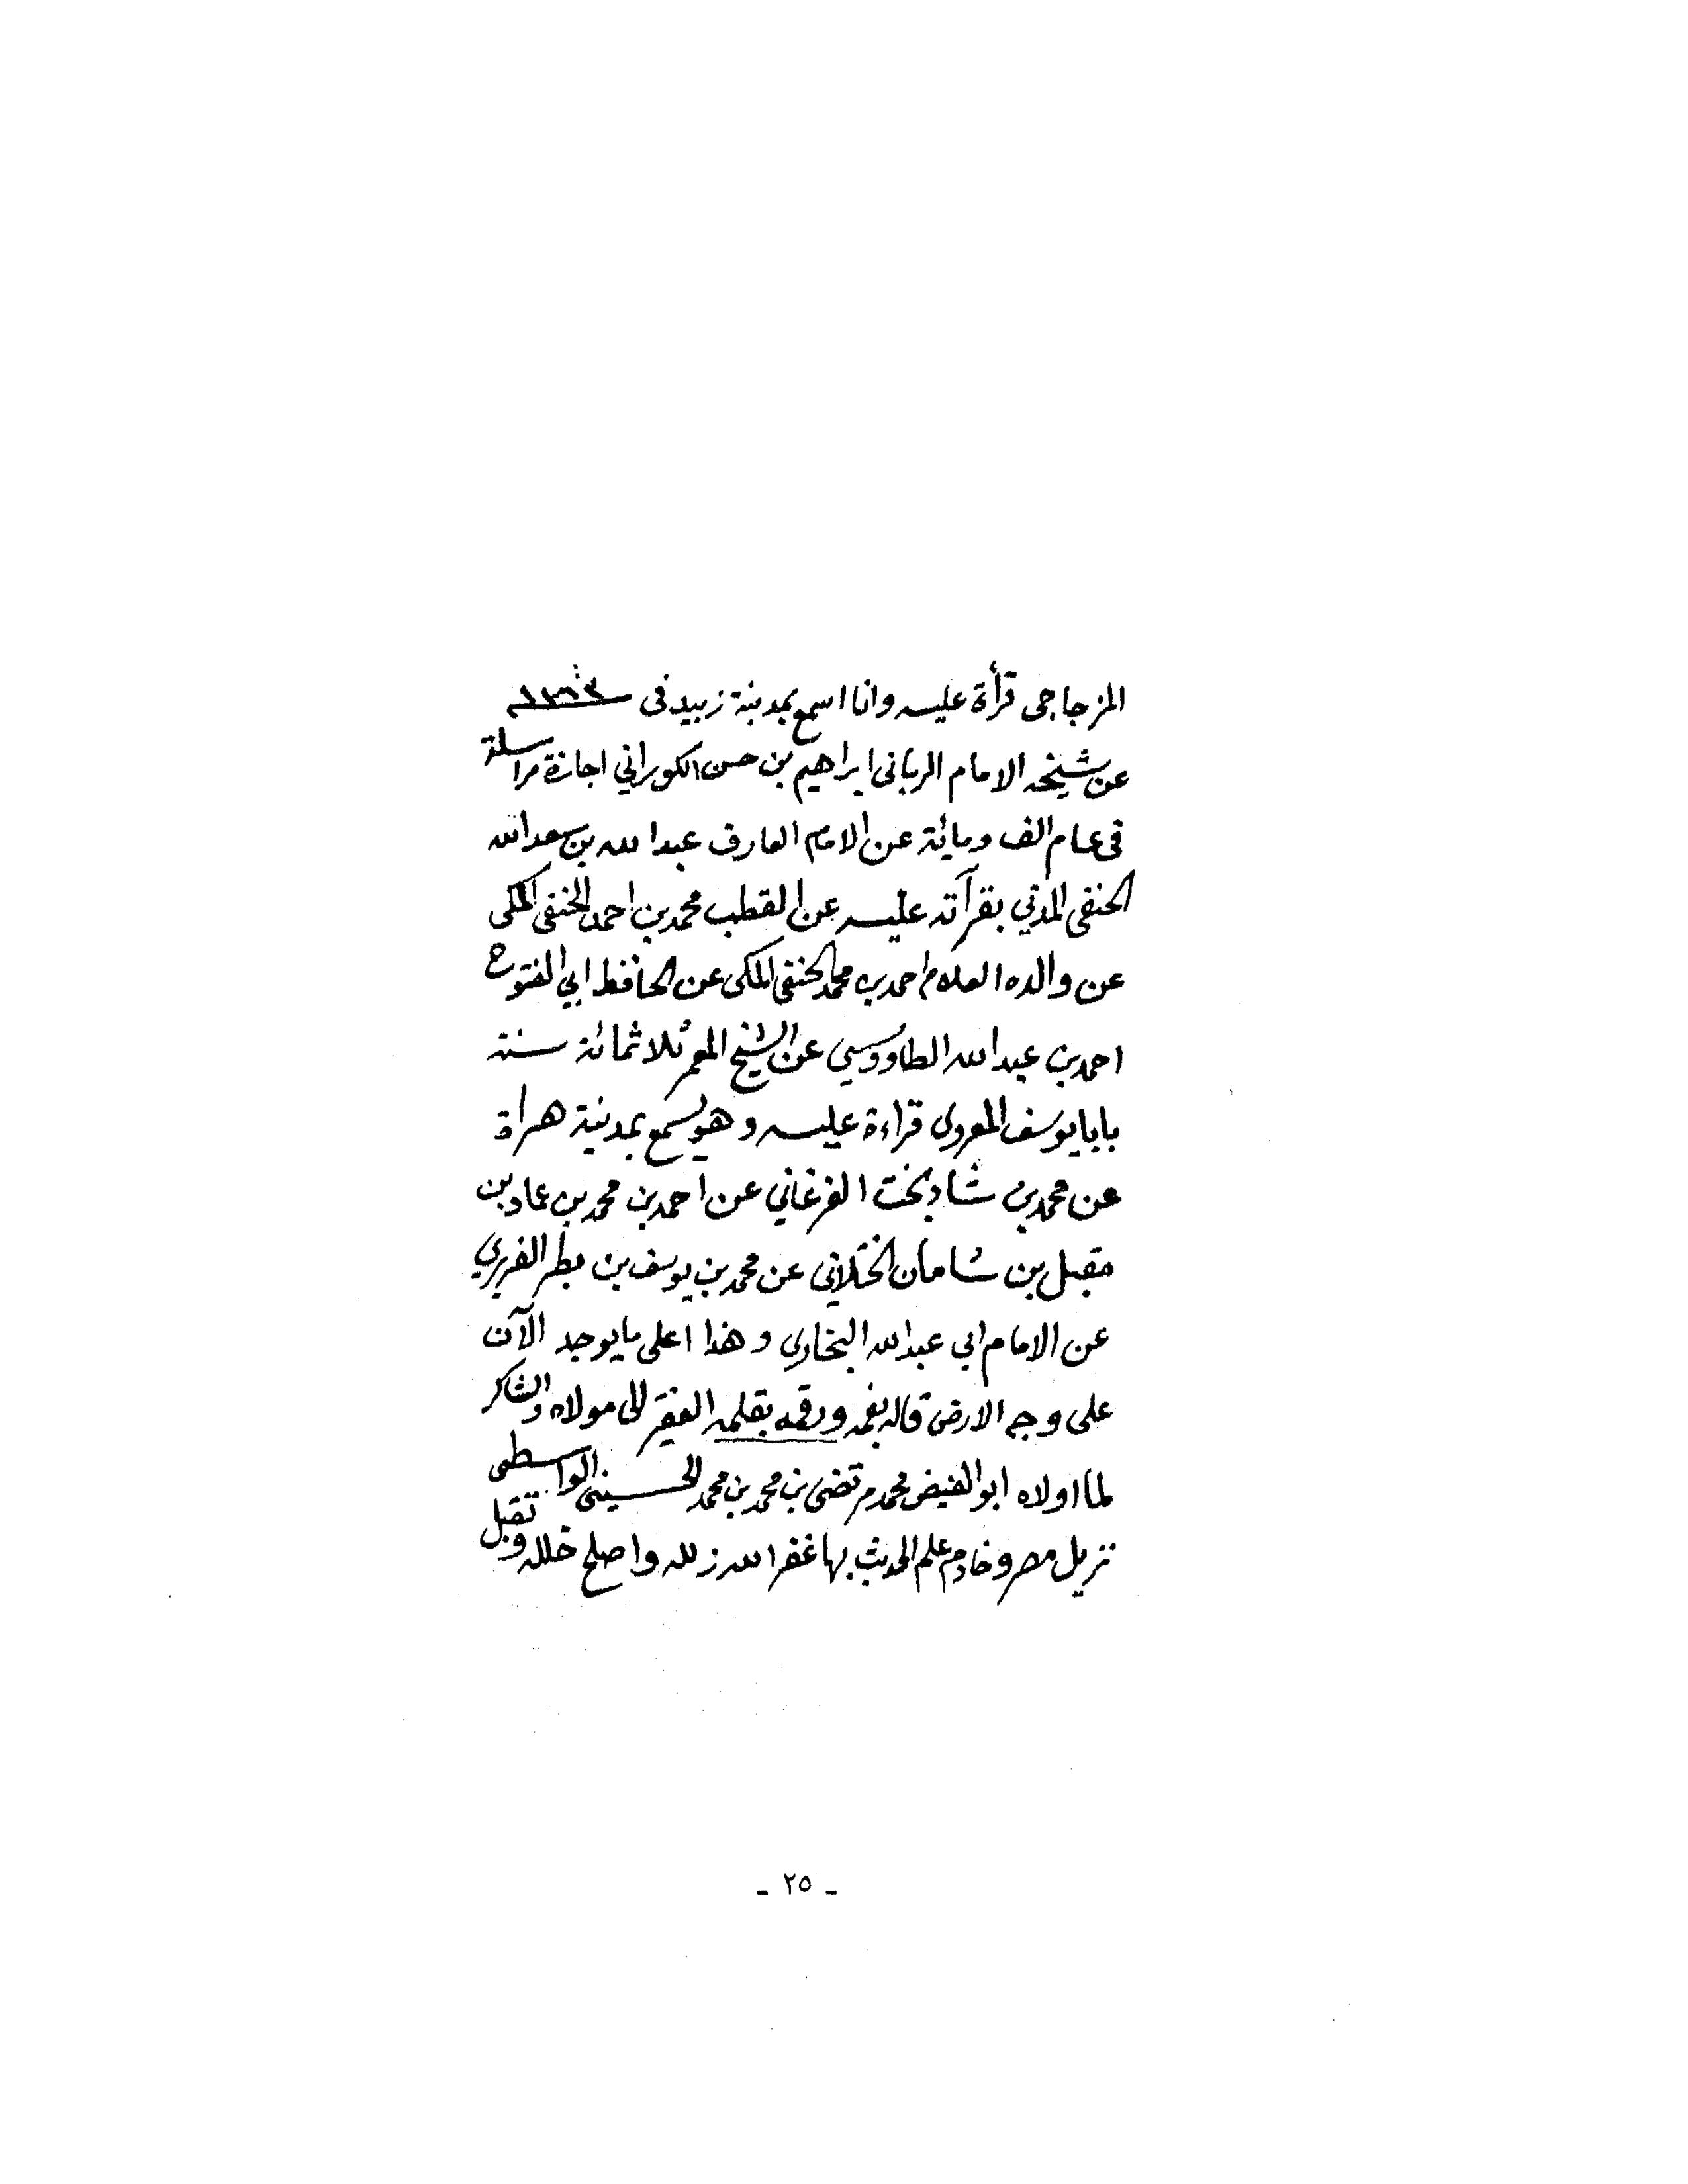 المزجاجى قرأة عليه وانا اسمع بمدينة زبيد فى سنة
عن شيخه الامام الربانى ابراهيم بن حسن الكوراني اجازة مراسلة
فى عام الف ومائة عن الامام العارف عبد الله بن سعد الله
الحنفى المدني بقرآته عليه عن القطب محمد بن احمد الحنفى المكى
عن والده العلام احمد بن محمد الحنفى المكى عن الحافظ ابي الفتوح
احمد بن عبد الله الطاووسي عن الشيخ المعمر ثلاثمائة سنة
بابا يوسف الهروى قراءة عليه وهو يسمع بمدينة هراة
عن محمد بن شاد بخت الفرغاني عن احمد بن محمد بن عماد بن
مقبل بن شاهان الختلانى عن محمد بن يوسف بن مطر الفربري
عن الامام ابي عبد الله البخارى وهذا اعلى ما يوجد الآن
على وجه الارض قاله بفمه ورقمه بقلمه الفقير الى مولاه والشاكر
لما اولاه ابو الفيض محمد مرتضى بن محمد بن محمد الحسينى الواسطى
نزيل مصر وخادم علم الحديث بها غفر الله زلله واصلح خلله وتقبل
- ٢٥ -